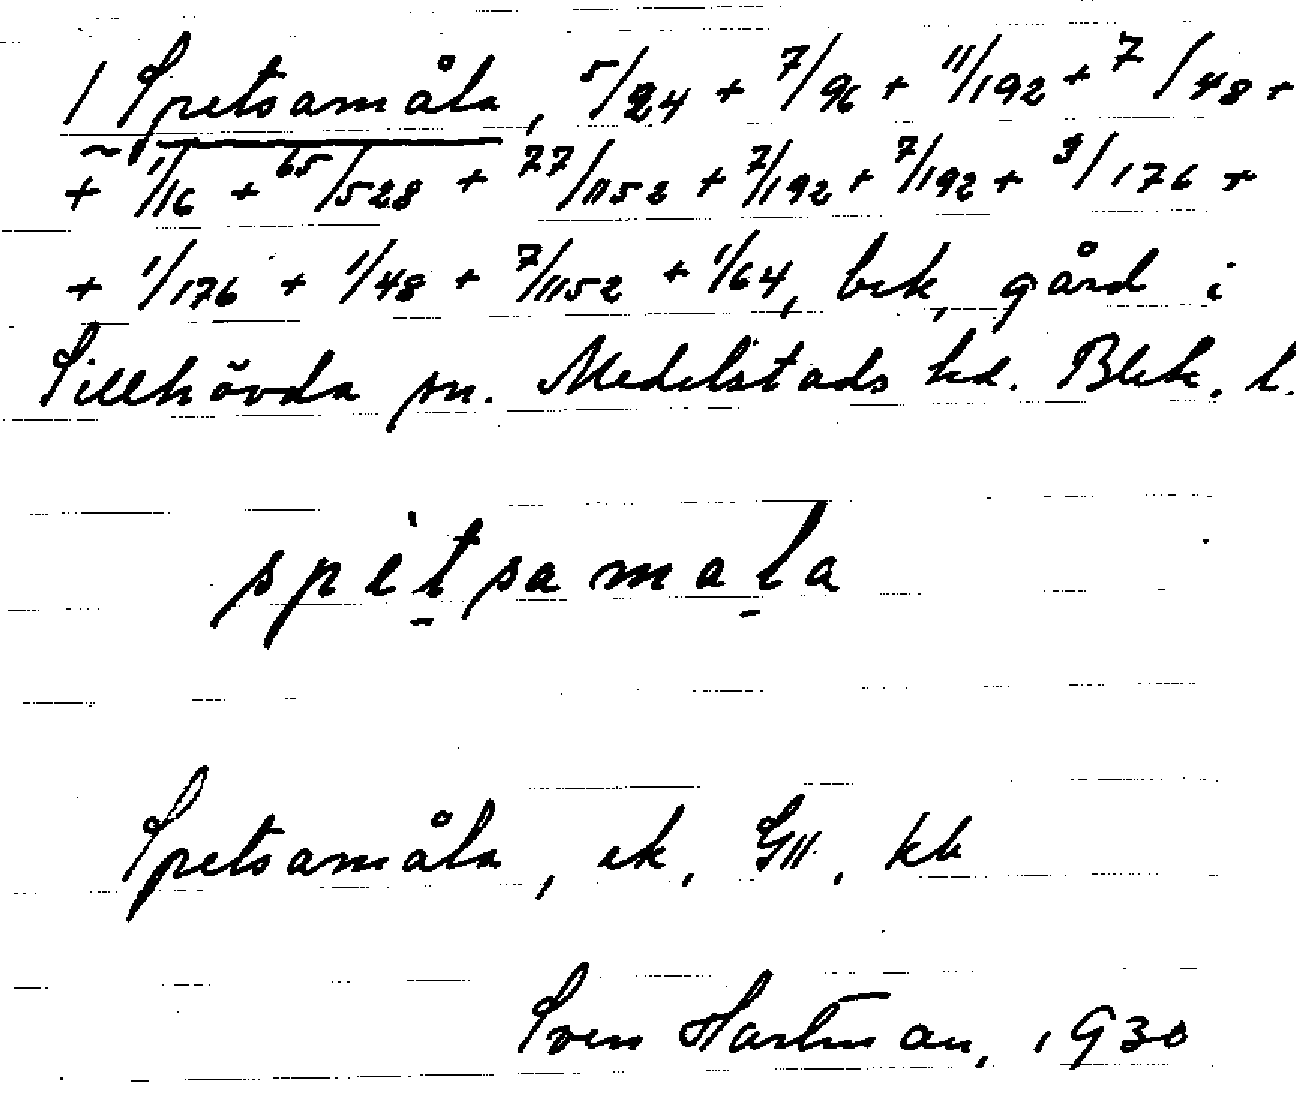 1 Spetsamåla, 5/24 + 7/96 + 11/192 + 7/48 +
+ 1/16 + 65/528 + 77/1152 + 7/192 + 7/192 + 9/176 +
+ 1/176 + 1/48 + 7/1152 + 1/64, bek, gård i
Tillhövda sn. Medelstads hd. Blek. l.
spètsamala
Spetsamåla, ek, GII, kb
Sven Hartman, 1930